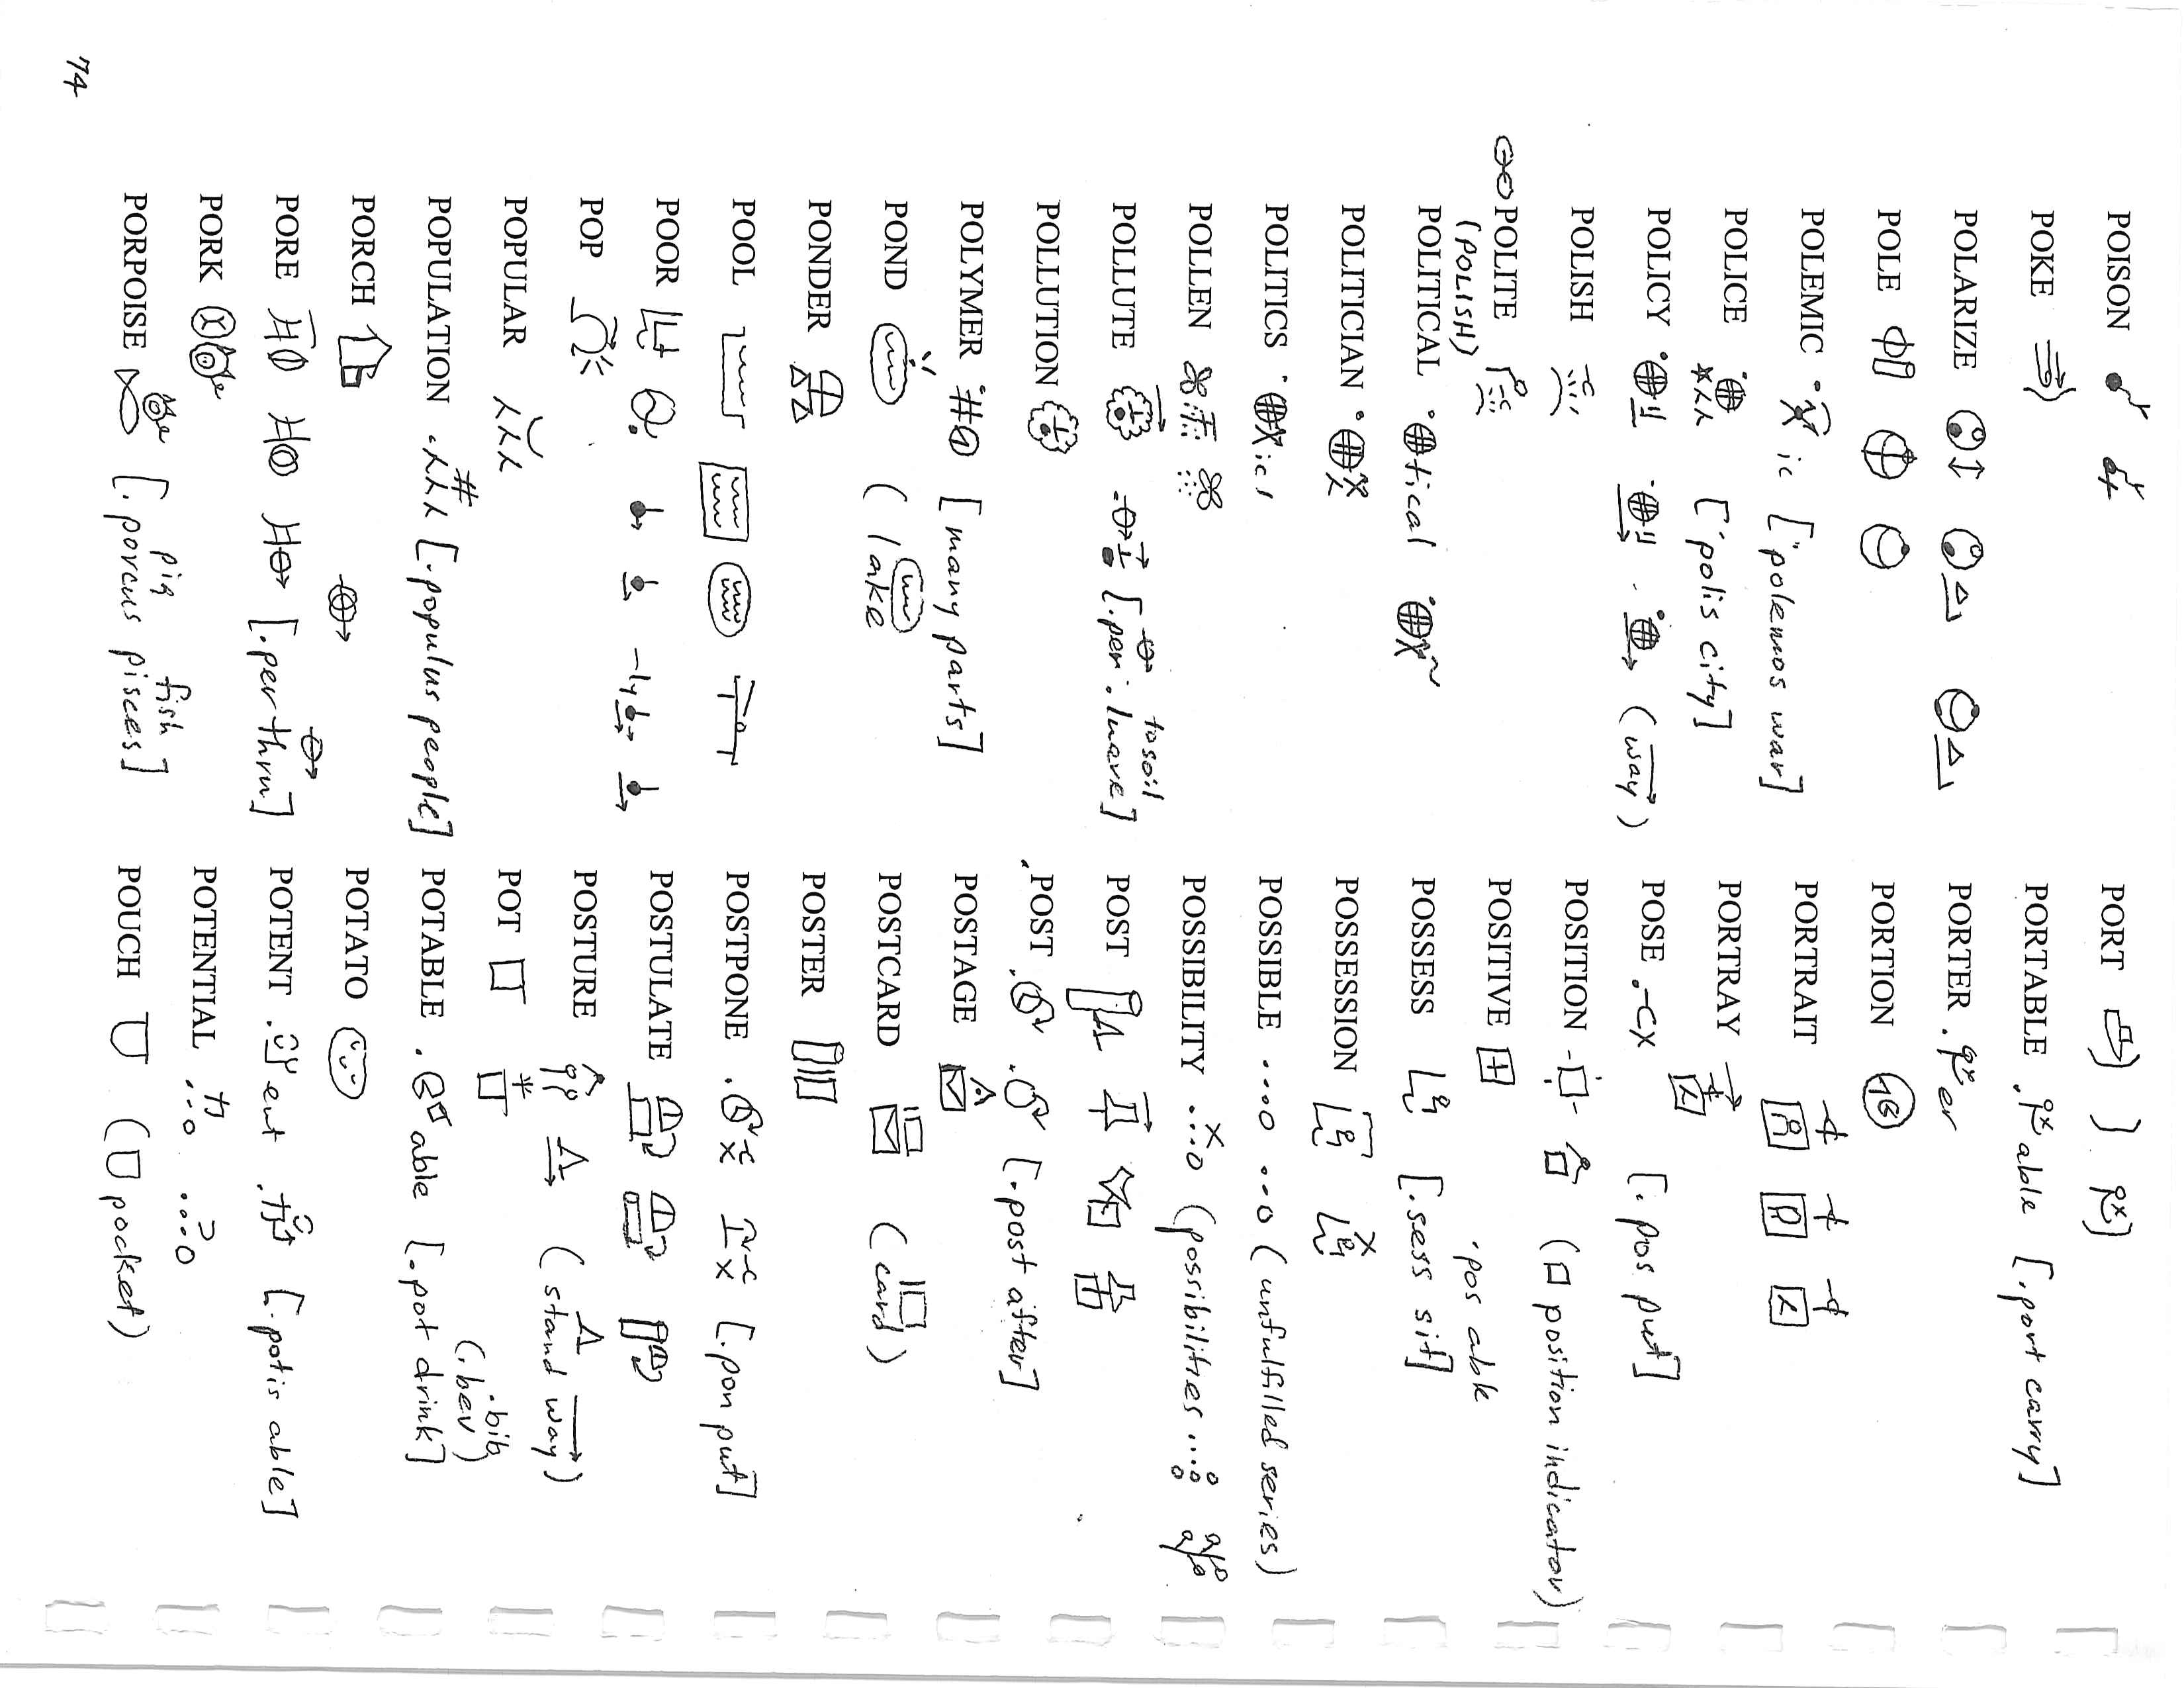 POISON
POKE
POLARIZE
POLE
POLEMIC ic ["polemos war]
POLICE ['polis city]
POLICY (way)
POLISH
POLITE
(POLISH)
POLITICAL tical
POLITICIAN
POLITICS ics
POLLEN
POLLUTE [.per .luere] to soil
POLLUTION
POLYMER # [many parts]
POND (lake
PONDER
POOL
POOR -ly
POP
POPULAR
POPULATION # [.populus people]
PORCH
PORE [.per thru]
PORK
PORPOISE [.porcus pisces] pig fish
PORT
PORTABLE able [.port carry]
PORTER er
PORTION
PORTRAIT
PORTRAY
POSE [.pos put]
POSITION (position indicator)
POSITIVE
.pos able
POSSESS [.sess sit]
POSSESSION
POSSIBLE (unfulfilled series)
POSSIBILITY (possibilities
POST
.POST [.post after]
POSTAGE
POSTCARD (card)
POSTER
POSTPONE [.pon put]
POSTULATE
POSTURE (stand way)
POT
.bib
(.bev)
POTABLE able [.pot drink]
POTATO
POTENT ent [.potis able]
POTENTIAL
POUCH (pocket)
74